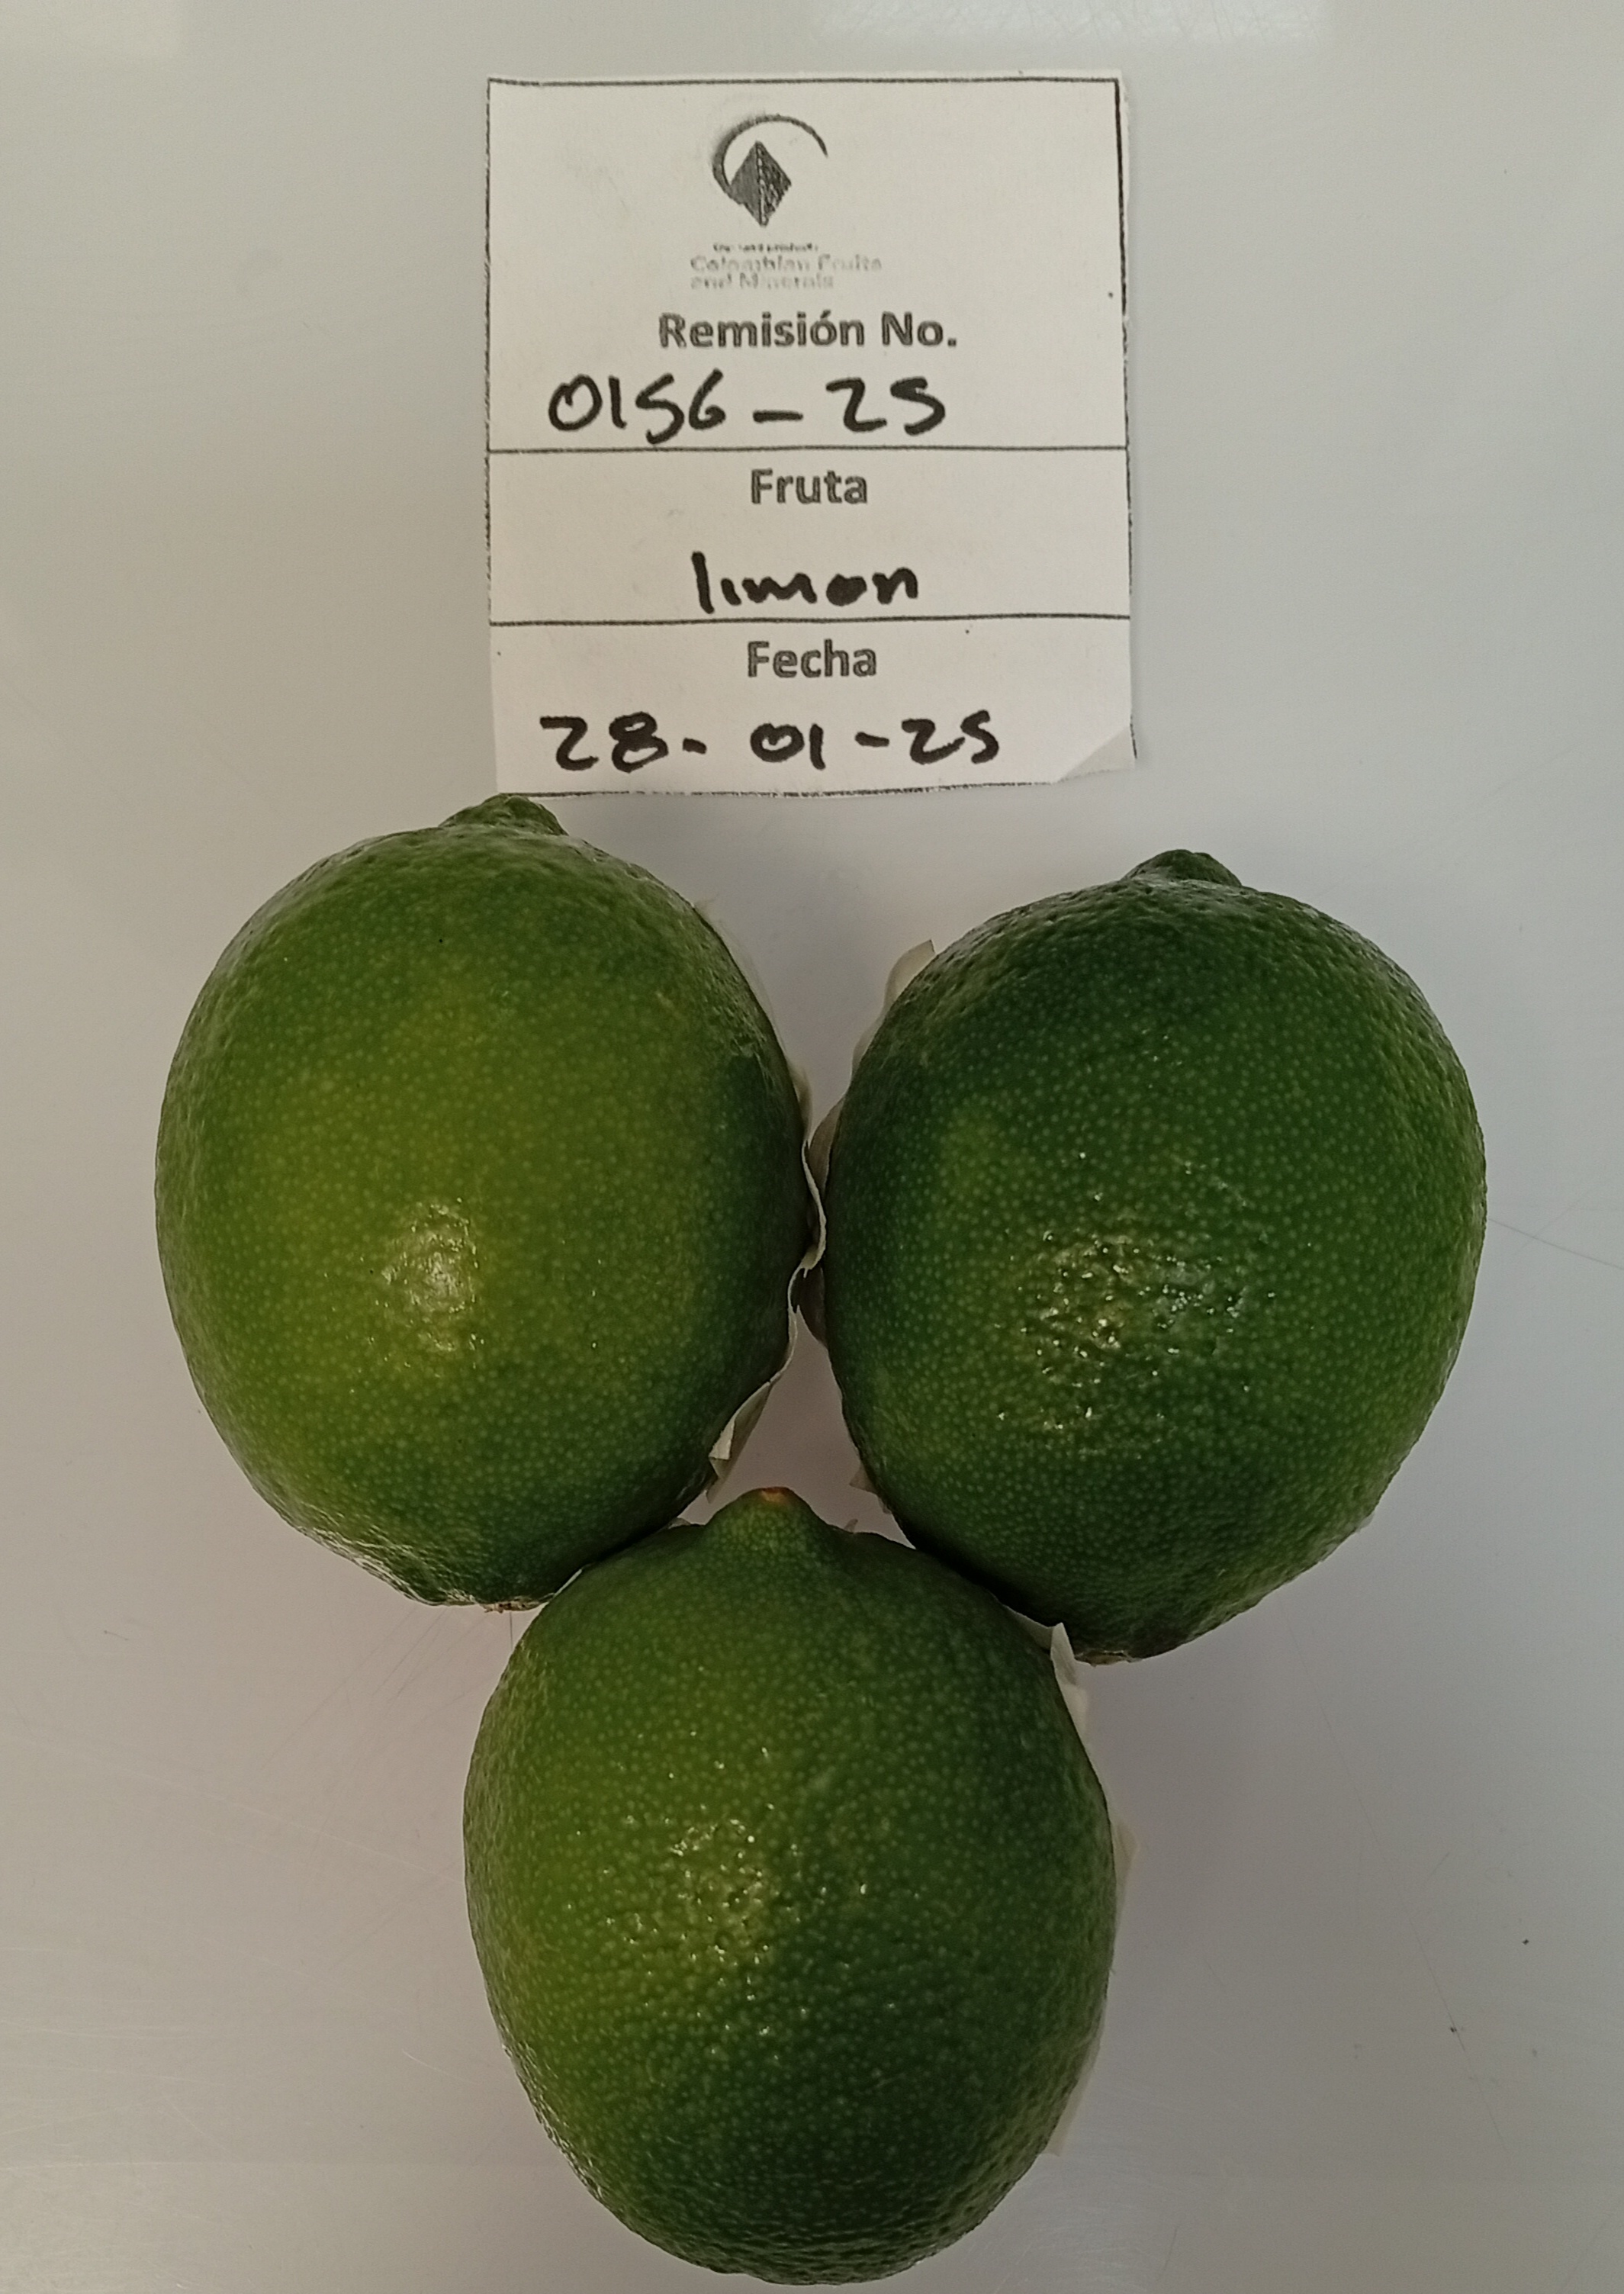 Colombian Fruits
and Minerals
Remisión No.
0156-25
Fruta
limon
Fecha
28-01-25